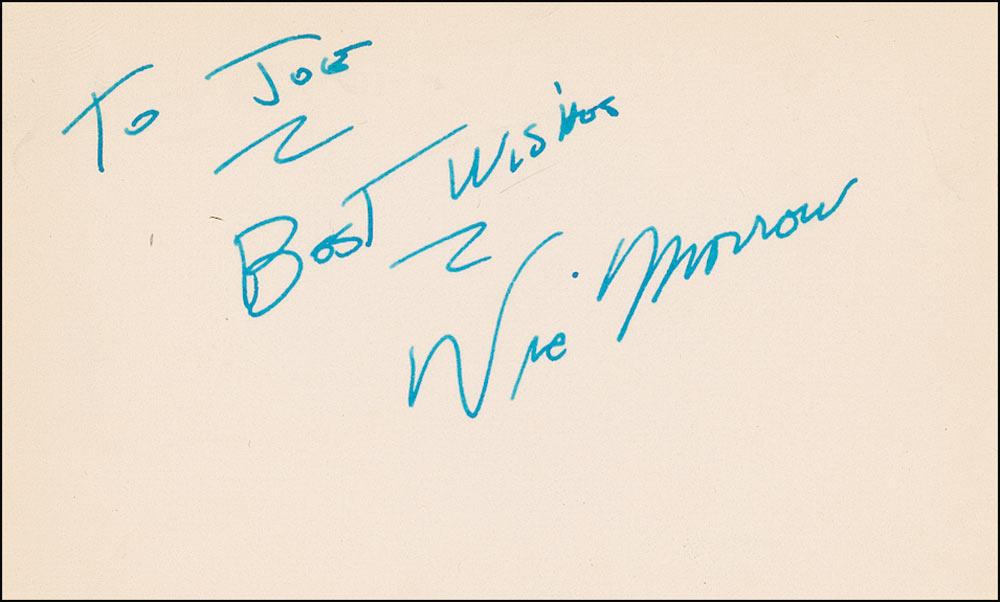 To Joe
Best Wishes
Vic Morrow